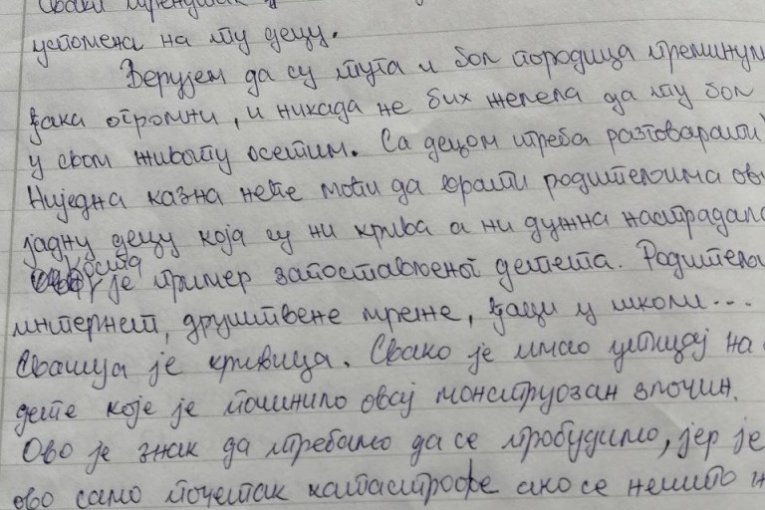 сваки тренутак
успомена на ту децу.
Верујем да су туга и бол породица преминули
ђака огромни, и никада не бих желела да ту бол
у свом животу осетим. Са децом треба разговарати
Ниједна казна неће моћи да врати родитељима ову
јадну децу која су ни крива а ни дужна настрадала
Коста је пример запостављеног детета. Родитељи
интернет, друштвене мреже, ђаци у школи...
Свашија је кривица. Свако је имао утицај на
дете које је починило овај монструозан злочин.
Ово је знак да требамо да се пробудимо, јер је
ово само почетак катастрофе ако се нешто н